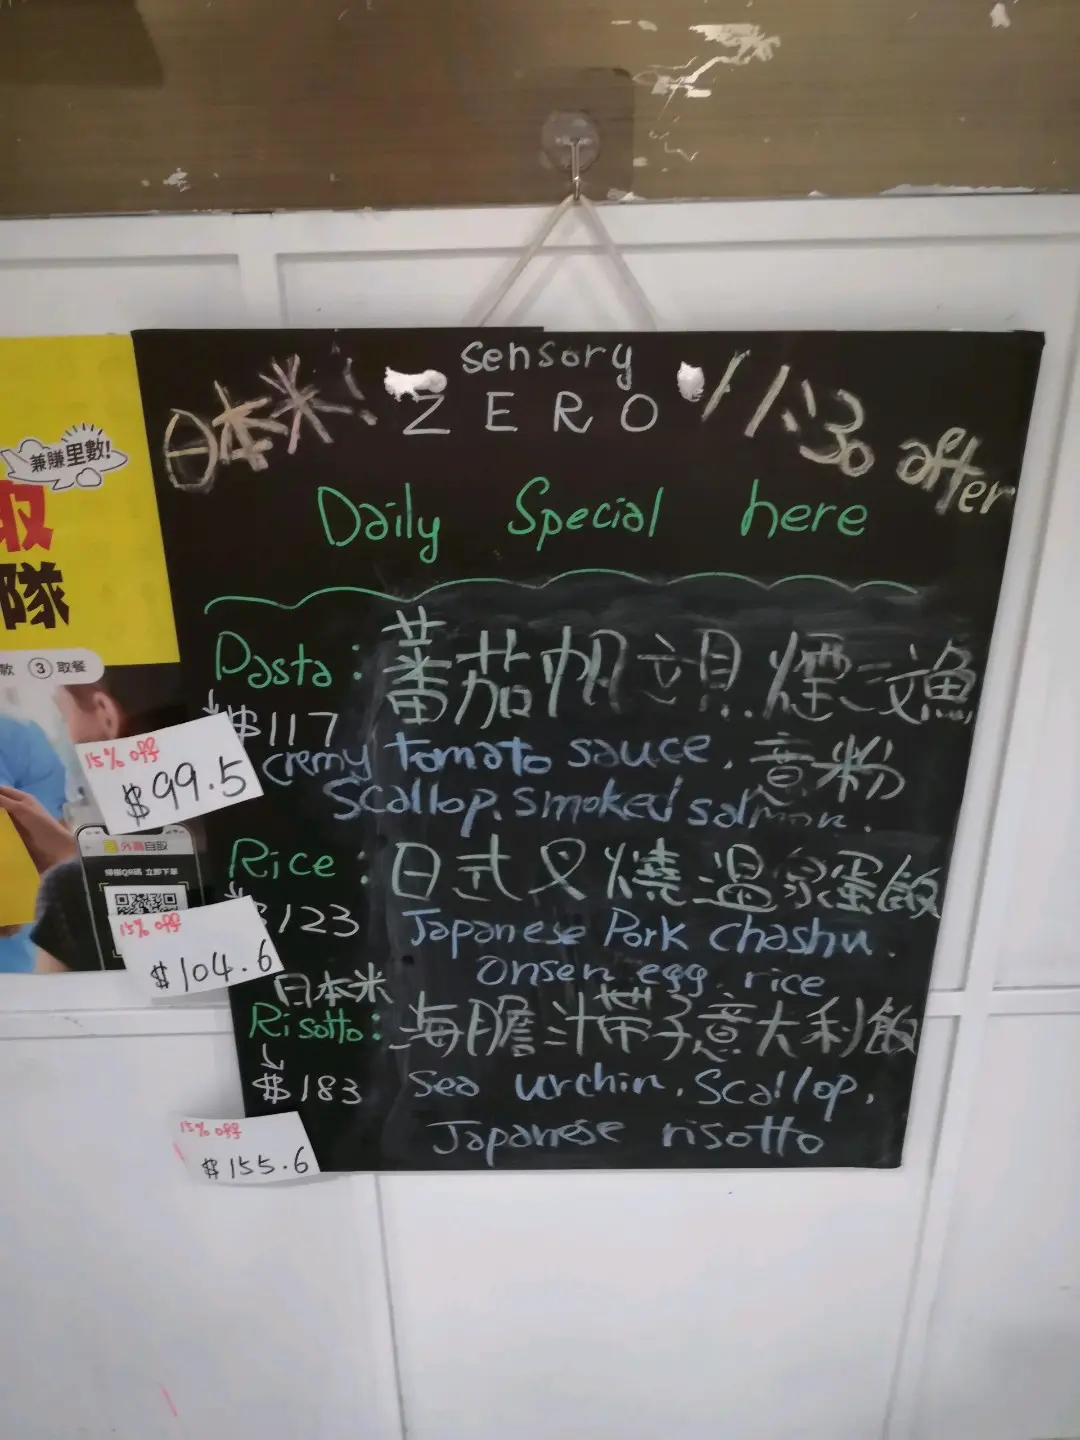 sensory
日本米! ZERO 11:30 after
Daily Special here
Pasta: 蕃茄帆立貝煙三文魚
$117
cremy tomato sauce, 意粉
Scallop, smoked salmon.
15% off
$99.5
Rice: 日式叉燒溫泉蛋飯
$123 Japanese Pork chashu.
onsen egg. rice
15% off
$104.6
日本米
Risotto: 海膽汁带子意大利飯
$183 Sea urchin, Scallop,
Japanese risotto
15% off
$155.6
兼賺里數!
取
隊
款 3 取餐
外賣自取